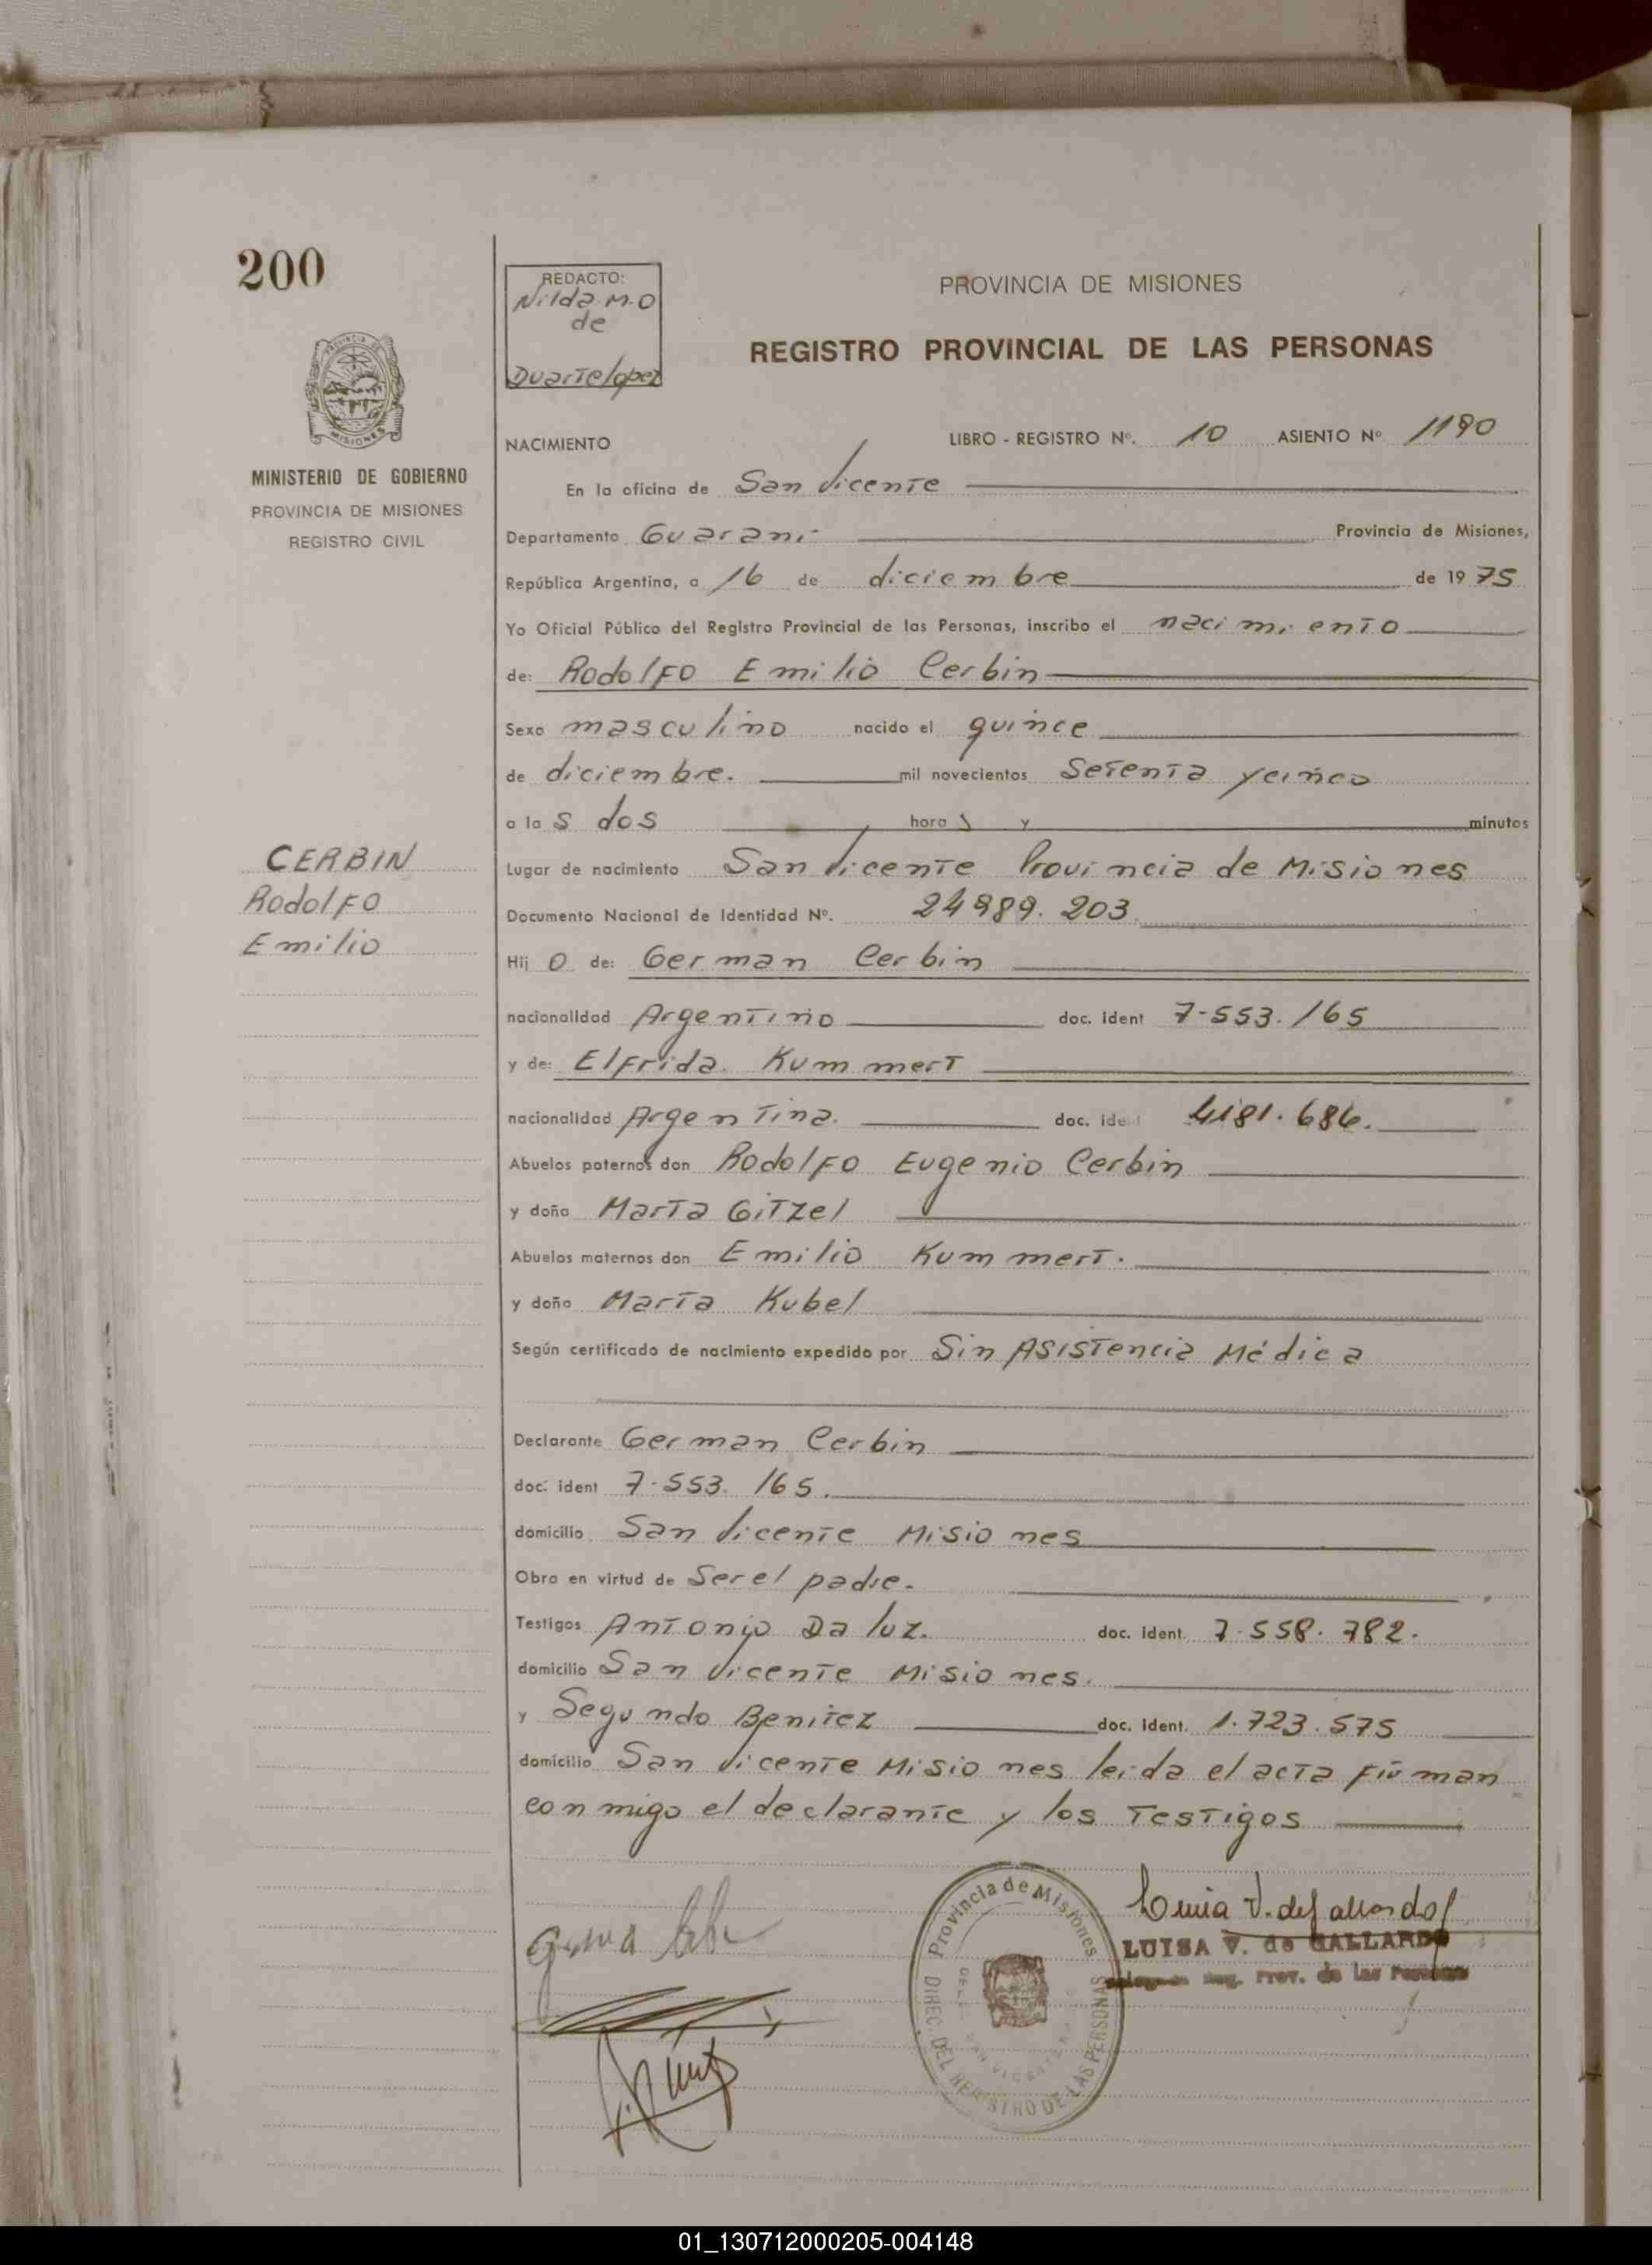 200
REDACTO:
Nilda M.O
de
Duarte Lopez
PROVINCIA DE MISIONES
REGISTRO PROVINCIAL DE LAS PERSONAS
MISIONES
MINISTERIO DE GOBIERNO
PROVINCIA DE MISIONES
REGISTRO CIVIL
NACIMIENTO LIBRO - REGISTRO Nº. 10 ASIENTO Nº 1190
En la oficina de San Vicente
Departamento Guarani Provincia de Misiones,
República Argentina, a 16 de diciembre de 1975
Yo Oficial Público del Registro Provincial de las Personas, inscribo el nacimiento
de: Rodolfo Emilio Cerbin
Sexo masculino nacido el quince
de diciembre. mil novecientos Setenta y cinco
a las dos horas y minutos
CERBIN
Rodolfo
Emilio
Lugar de nacimiento San Vicente Provincia de Misiones
Documento Nacional de Identidad Nº. 24989.203.
Hijo de: German Cerbin
nacionalidad Argentino doc. ident 7-553.165
y de: Elfrida. Kummert
nacionalidad Argentina. doc. ident 4181.686.
Abuelos paternos don Rodolfo Eugenio Cerbin
y doña Marta Gitzel
Abuelos maternos don Emilio Kummert.
y doña Marta Kubel
Según certificado de nacimiento expedido por Sin Asistencia Médica
Declarante German Cerbin
doc. ident 7.553.165.
domicilio San Vicente Misiones
Obra en virtud de Ser el padre.
Testigos Antonio Da luz. doc. ident. 7.558.782.
domicilio San Vicente Misiones.
y Segundo Benitez doc. ident. 1.723.575
domicilio San Vicente Misiones leida el acta firman
conmigo el declarante y los Testigos
Provincia de Misiones
DIREC. DEL REGISTRO DE LAS PERSONAS
LUISA V. de GALLARDO
Reg. Prov. de las Personas
01_130712000205-004148